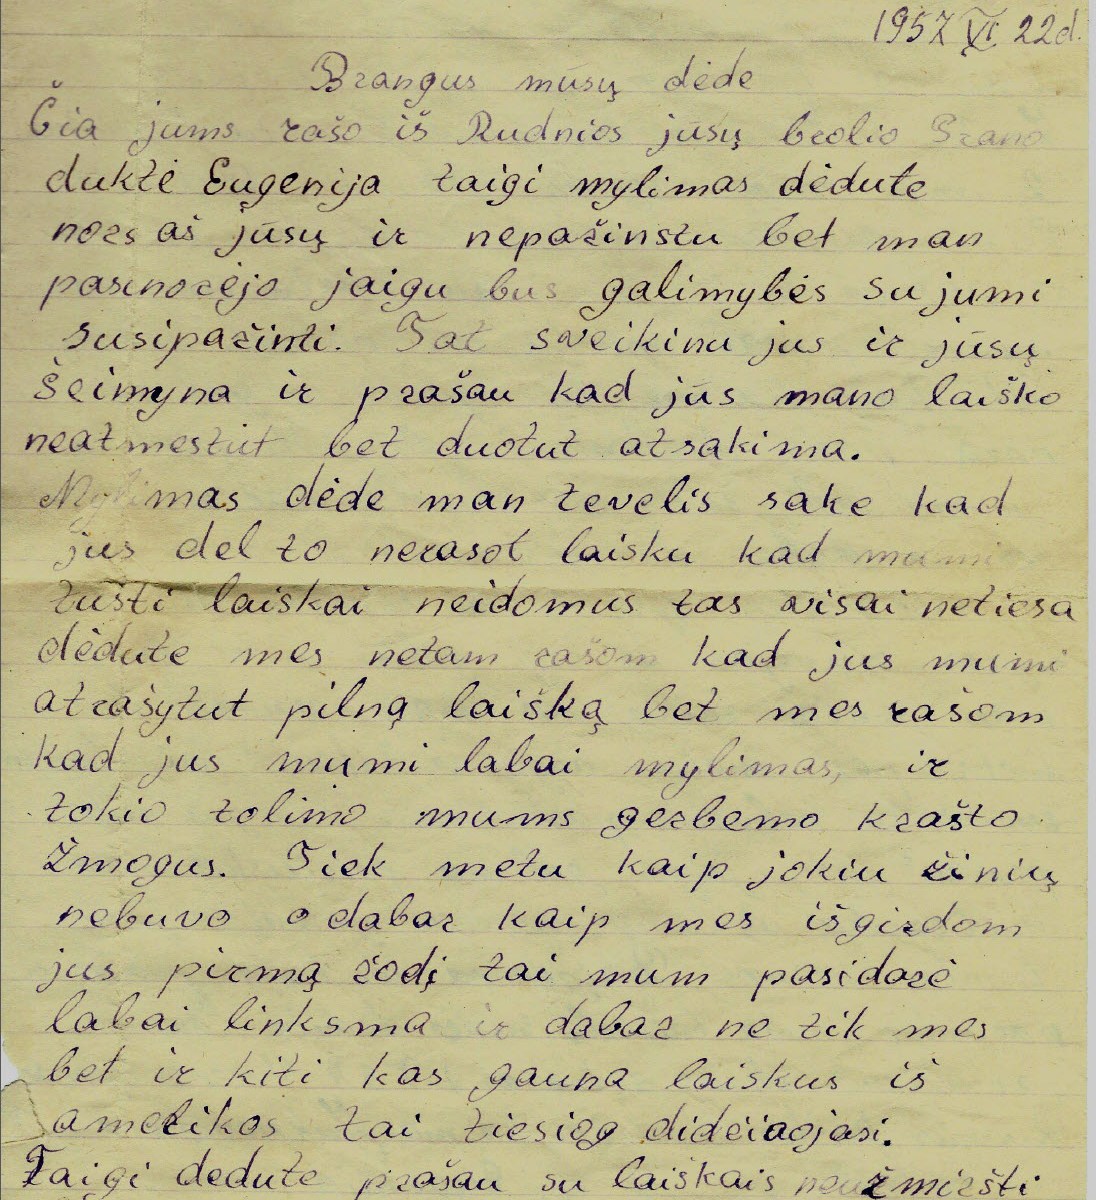 1957 VI 22d.
Brangus mūsų dėde
Čia jums rašo iš Rudnios jūsų brolio Prano
duktė Eugenija taigi mylimas dėdute
nors aš jūsų ir nepažinstu bet man
pasinorėjo jaigu bus galimybės su jumi
susipažinti. Tat sveikinu jus ir jūsų
šeimyna ir prašau kad jūs mano laiško
neatmestut bet duotut atsakima.
Mylimas dėde man tevelis sake kad
jus del to nerasot laisku kad mumi
tušti laiskai neidomus tas visai netiesa
dėdute mes netam rašom kad jus mumi
atrašytut pilną laišką bet mes rašom
kad jus mumi labai mylimas, ir
tokio tolimo mums gerbemo krašto
žmogus. Tiek metu kaip jokiu žinių
nebuvo o dabar kaip mes išgirdom
jus pirmą žodį tai mum pasidarė
labai linksma ir dabar ne tik mes
bet ir kiti kas gauna laiskus iš
amerikos tai tiesiog
Taigi dedute prašau su laiškais neužmiršti